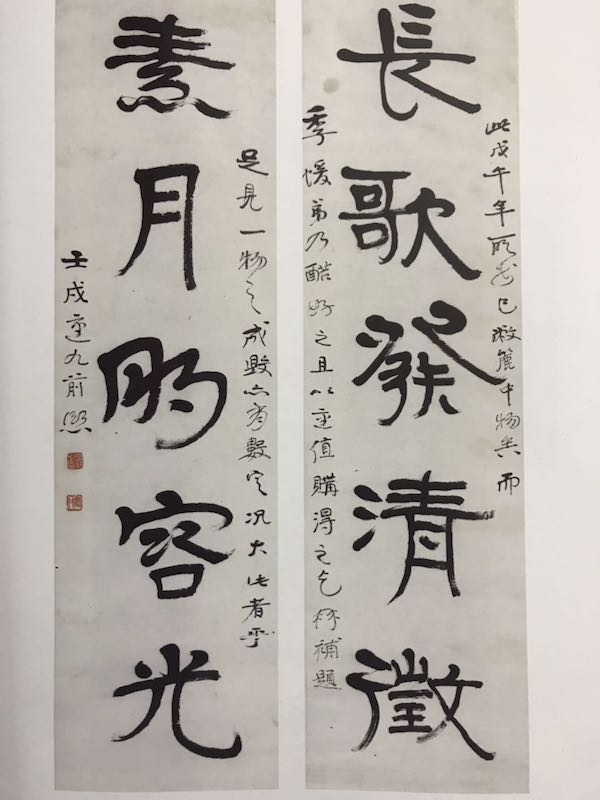 長歌發清徵
此戊午年所書已敝簏中物矣而
季蝯弟乃酷好之且以重值購得之乞補題
素月明容光
足見一物之成毀亦有數定況大此者乎
壬戌重九前熙